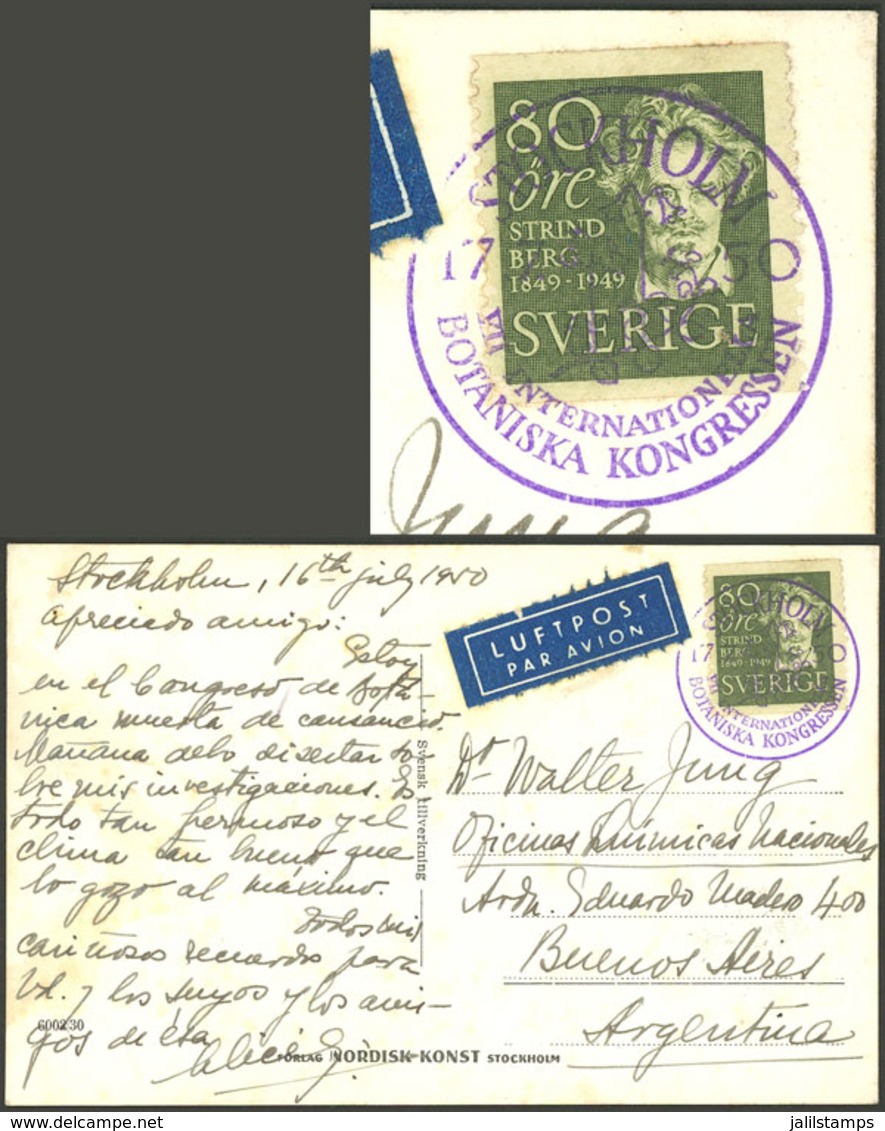 80
öre
STRIND
BERG
1849-1949
SVERIGE
STOCKHOLM
17 50
VII INTERNATIONELLA
BOTANISKA KONGRESSEN
Jung
Stockholm, 16th july 1950
Apreciado amigo:
Estoy
en el Congreso de Botá-
nica muerta de cansancio.
Mañana debo disertar so-
bre mis investigaciones. Es
todo tan hermoso y el
clima tan bueno que
lo gozo al máximo.
Todos mis
cariñosos recuerdos para
Vd. y los suyos y los ami-
gos de ésa
Alicia
600230
Svensk tillverkning
FÖRLAG NORDISK-KONST STOCKHOLM
LUFTPOST
PAR AVION
80
öre
STRIND
BERG
1849-1949
SVERIGE
STOCKHOLM
17 50
VII INTERNATIONELLA
BOTANISKA KONGRESSEN
Dr Walter Jung
Oficinas Químicas Nacionales
Avda. Eduardo Madero 400
Buenos Aires
Argentina
www.delcampe.net
jalilstamps